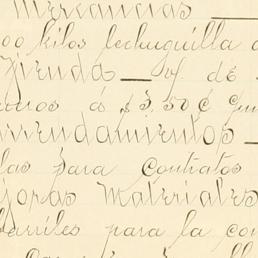 Mercancias
00 kilos lechuguilla
Tienda — of de
á $3.50 ¢
arrendamientos
las para contratos
joras Materiales
barriles para la con